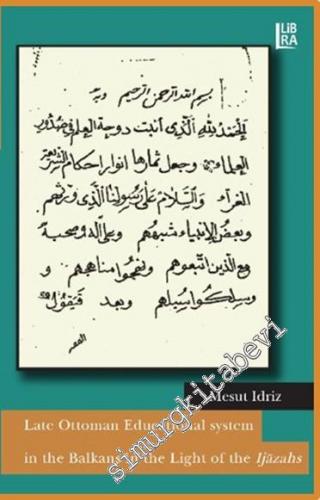 LiB
RA
بسم الله الرحمن الرحيم وبه
الحمد لله الذي أنبت دوحة العلم في صدور
العلماء وجعل ثمارها انوار احكام الشريعة
الغراء والسلام على رسولنا الذي ورثهم
وبعض الانبياء شبههم وعلى آله وصحبه
مع الذين اتبعوهم ونهجوا مناهجهم و
وسلكوا سبيلهم وبعد فيقول
Mesut Idriz
Late Ottoman Educational system
in the Balkans in the Light of the Ijāzahs
simurgkitabevi